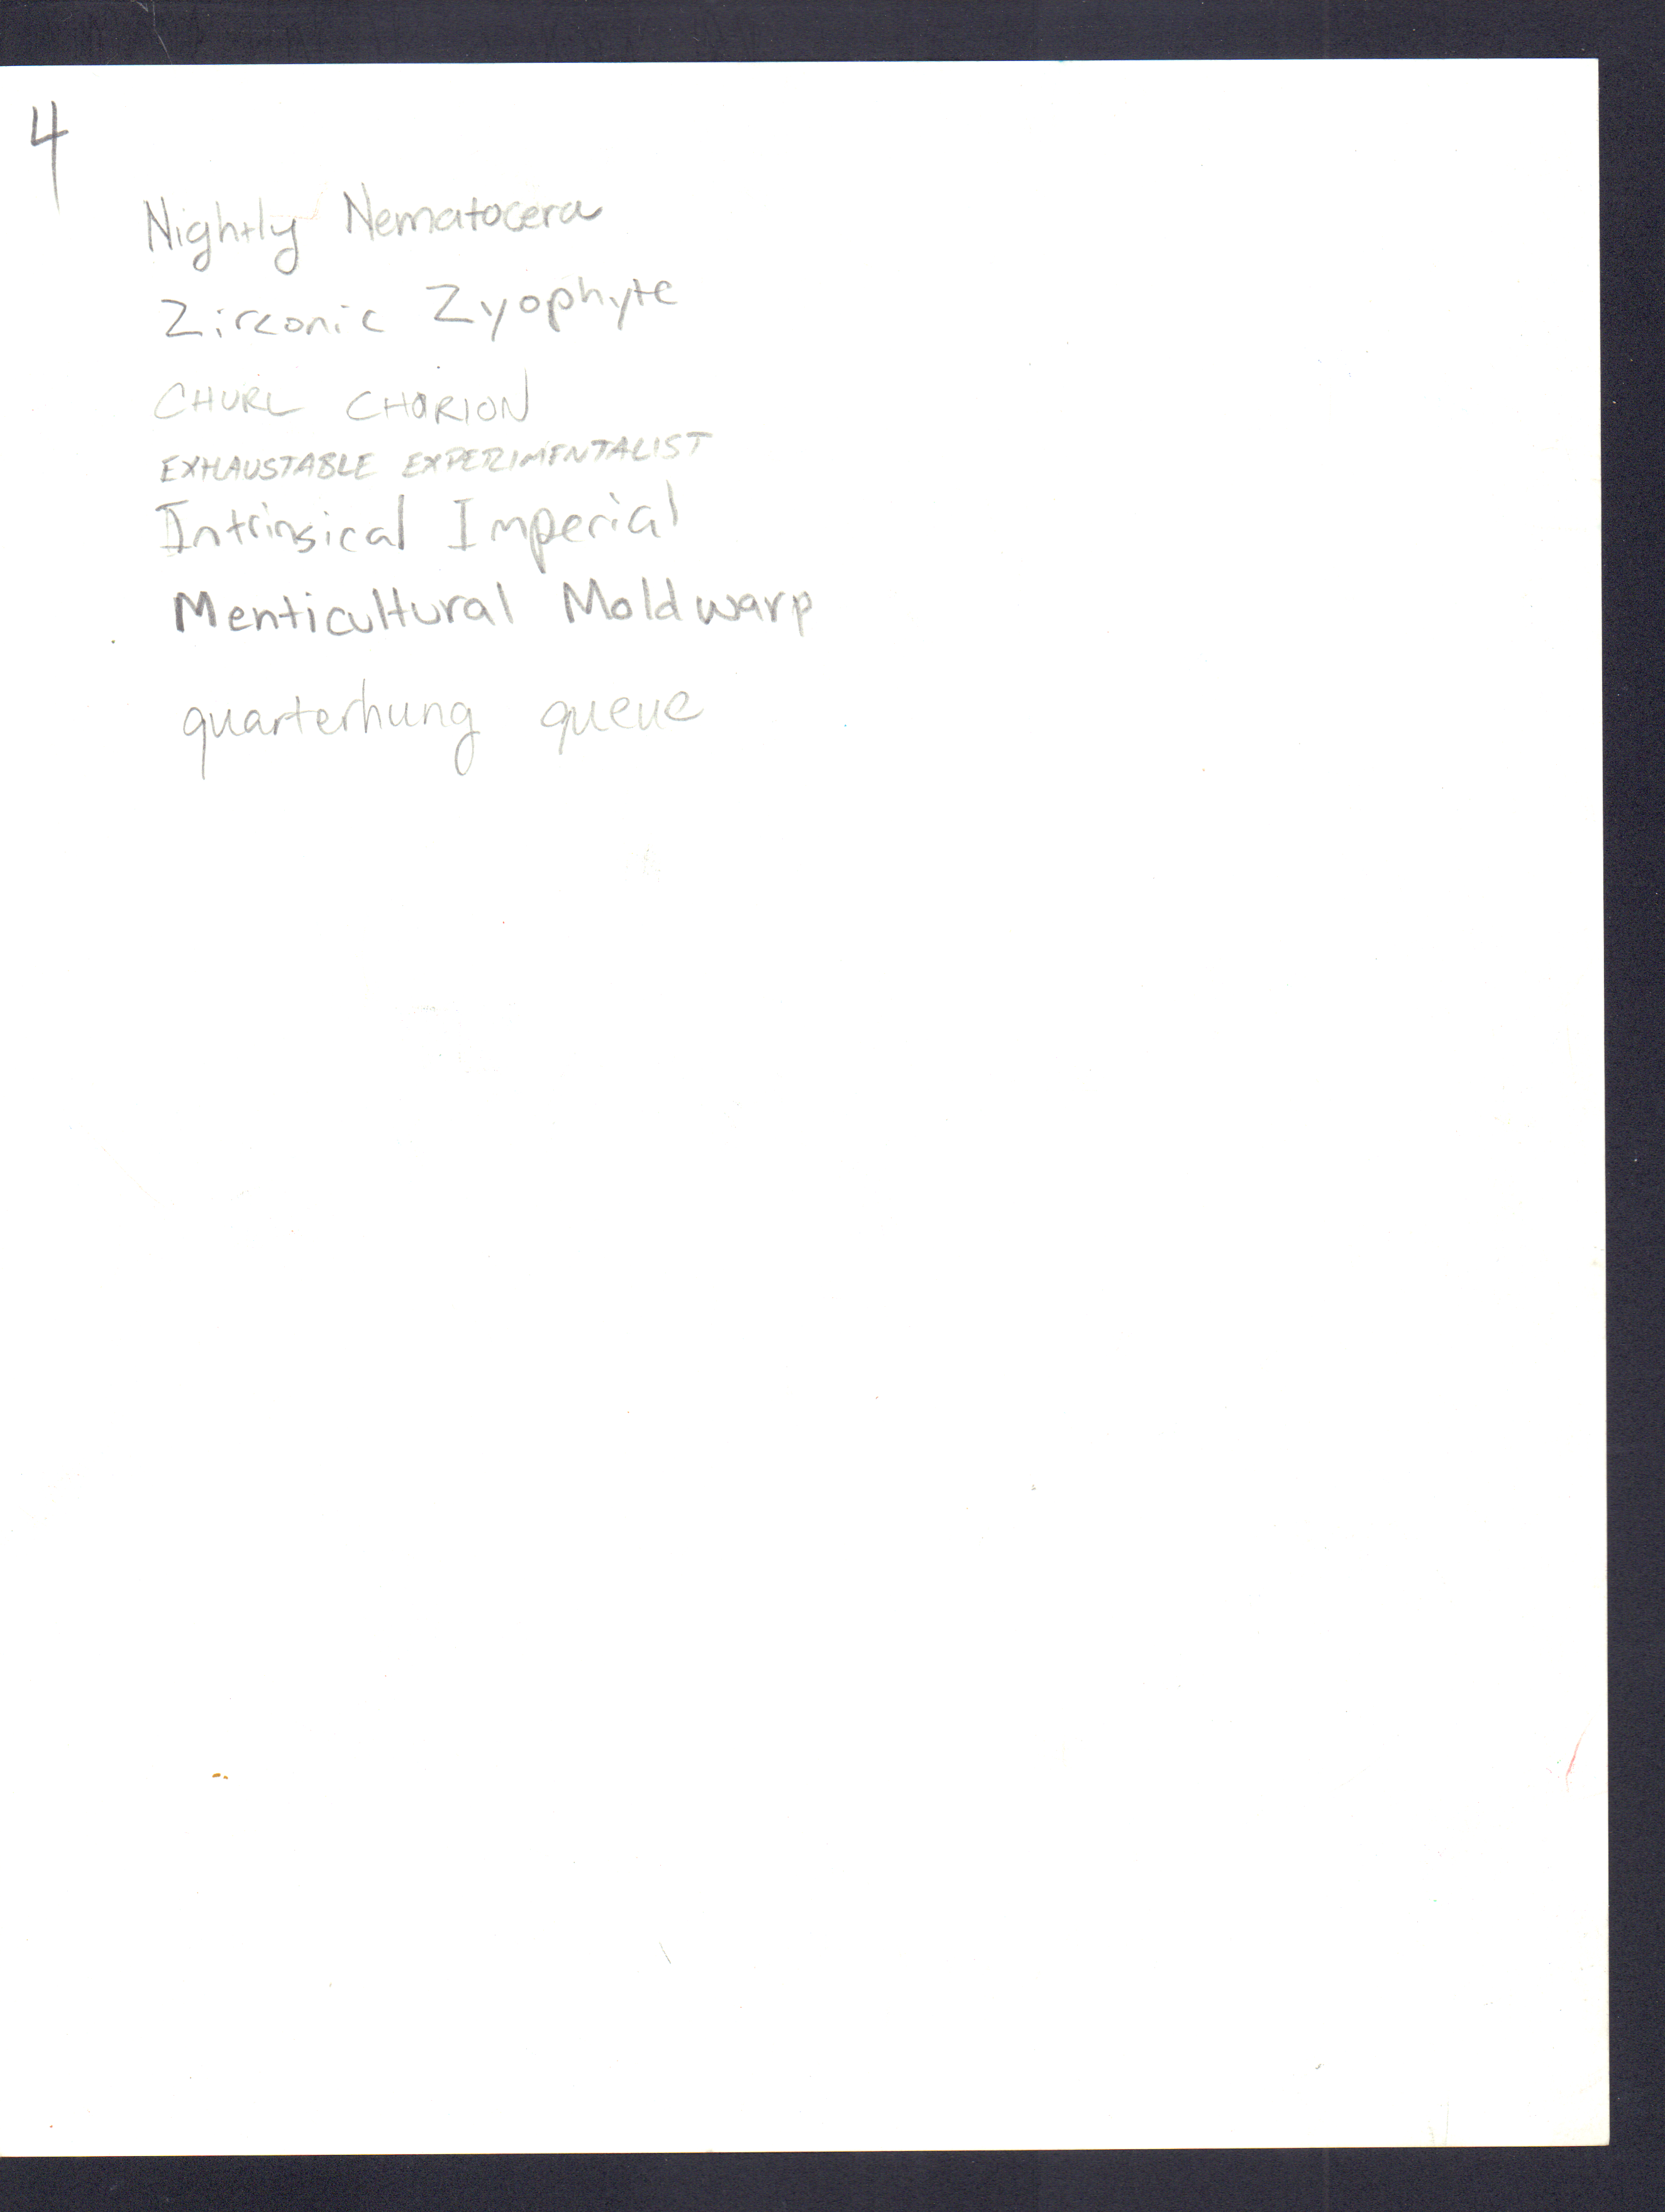 4
Nightly Nematocera
Zirconic Zyophyte
CHURL CHORION
EXHAUSTABLE EXPERIMENTALIST
Intrinsical Imperial
Menticultural Moldwarp
quarterhung queue